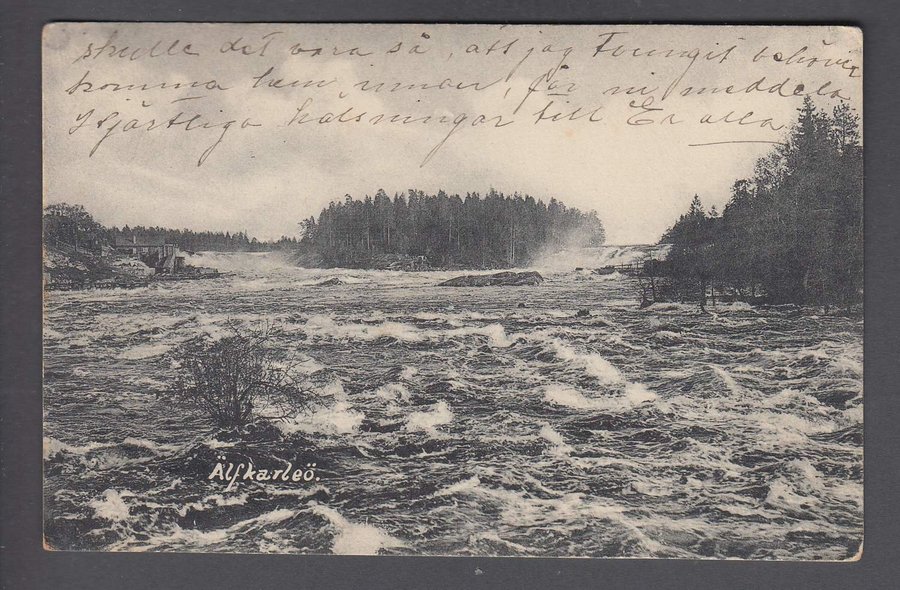 skulle det vara så, att jag Tvungit behöver
komma hem, innan, för ni meddela
Hjärtliga hälsningar till Er alla
Älfkarleö.